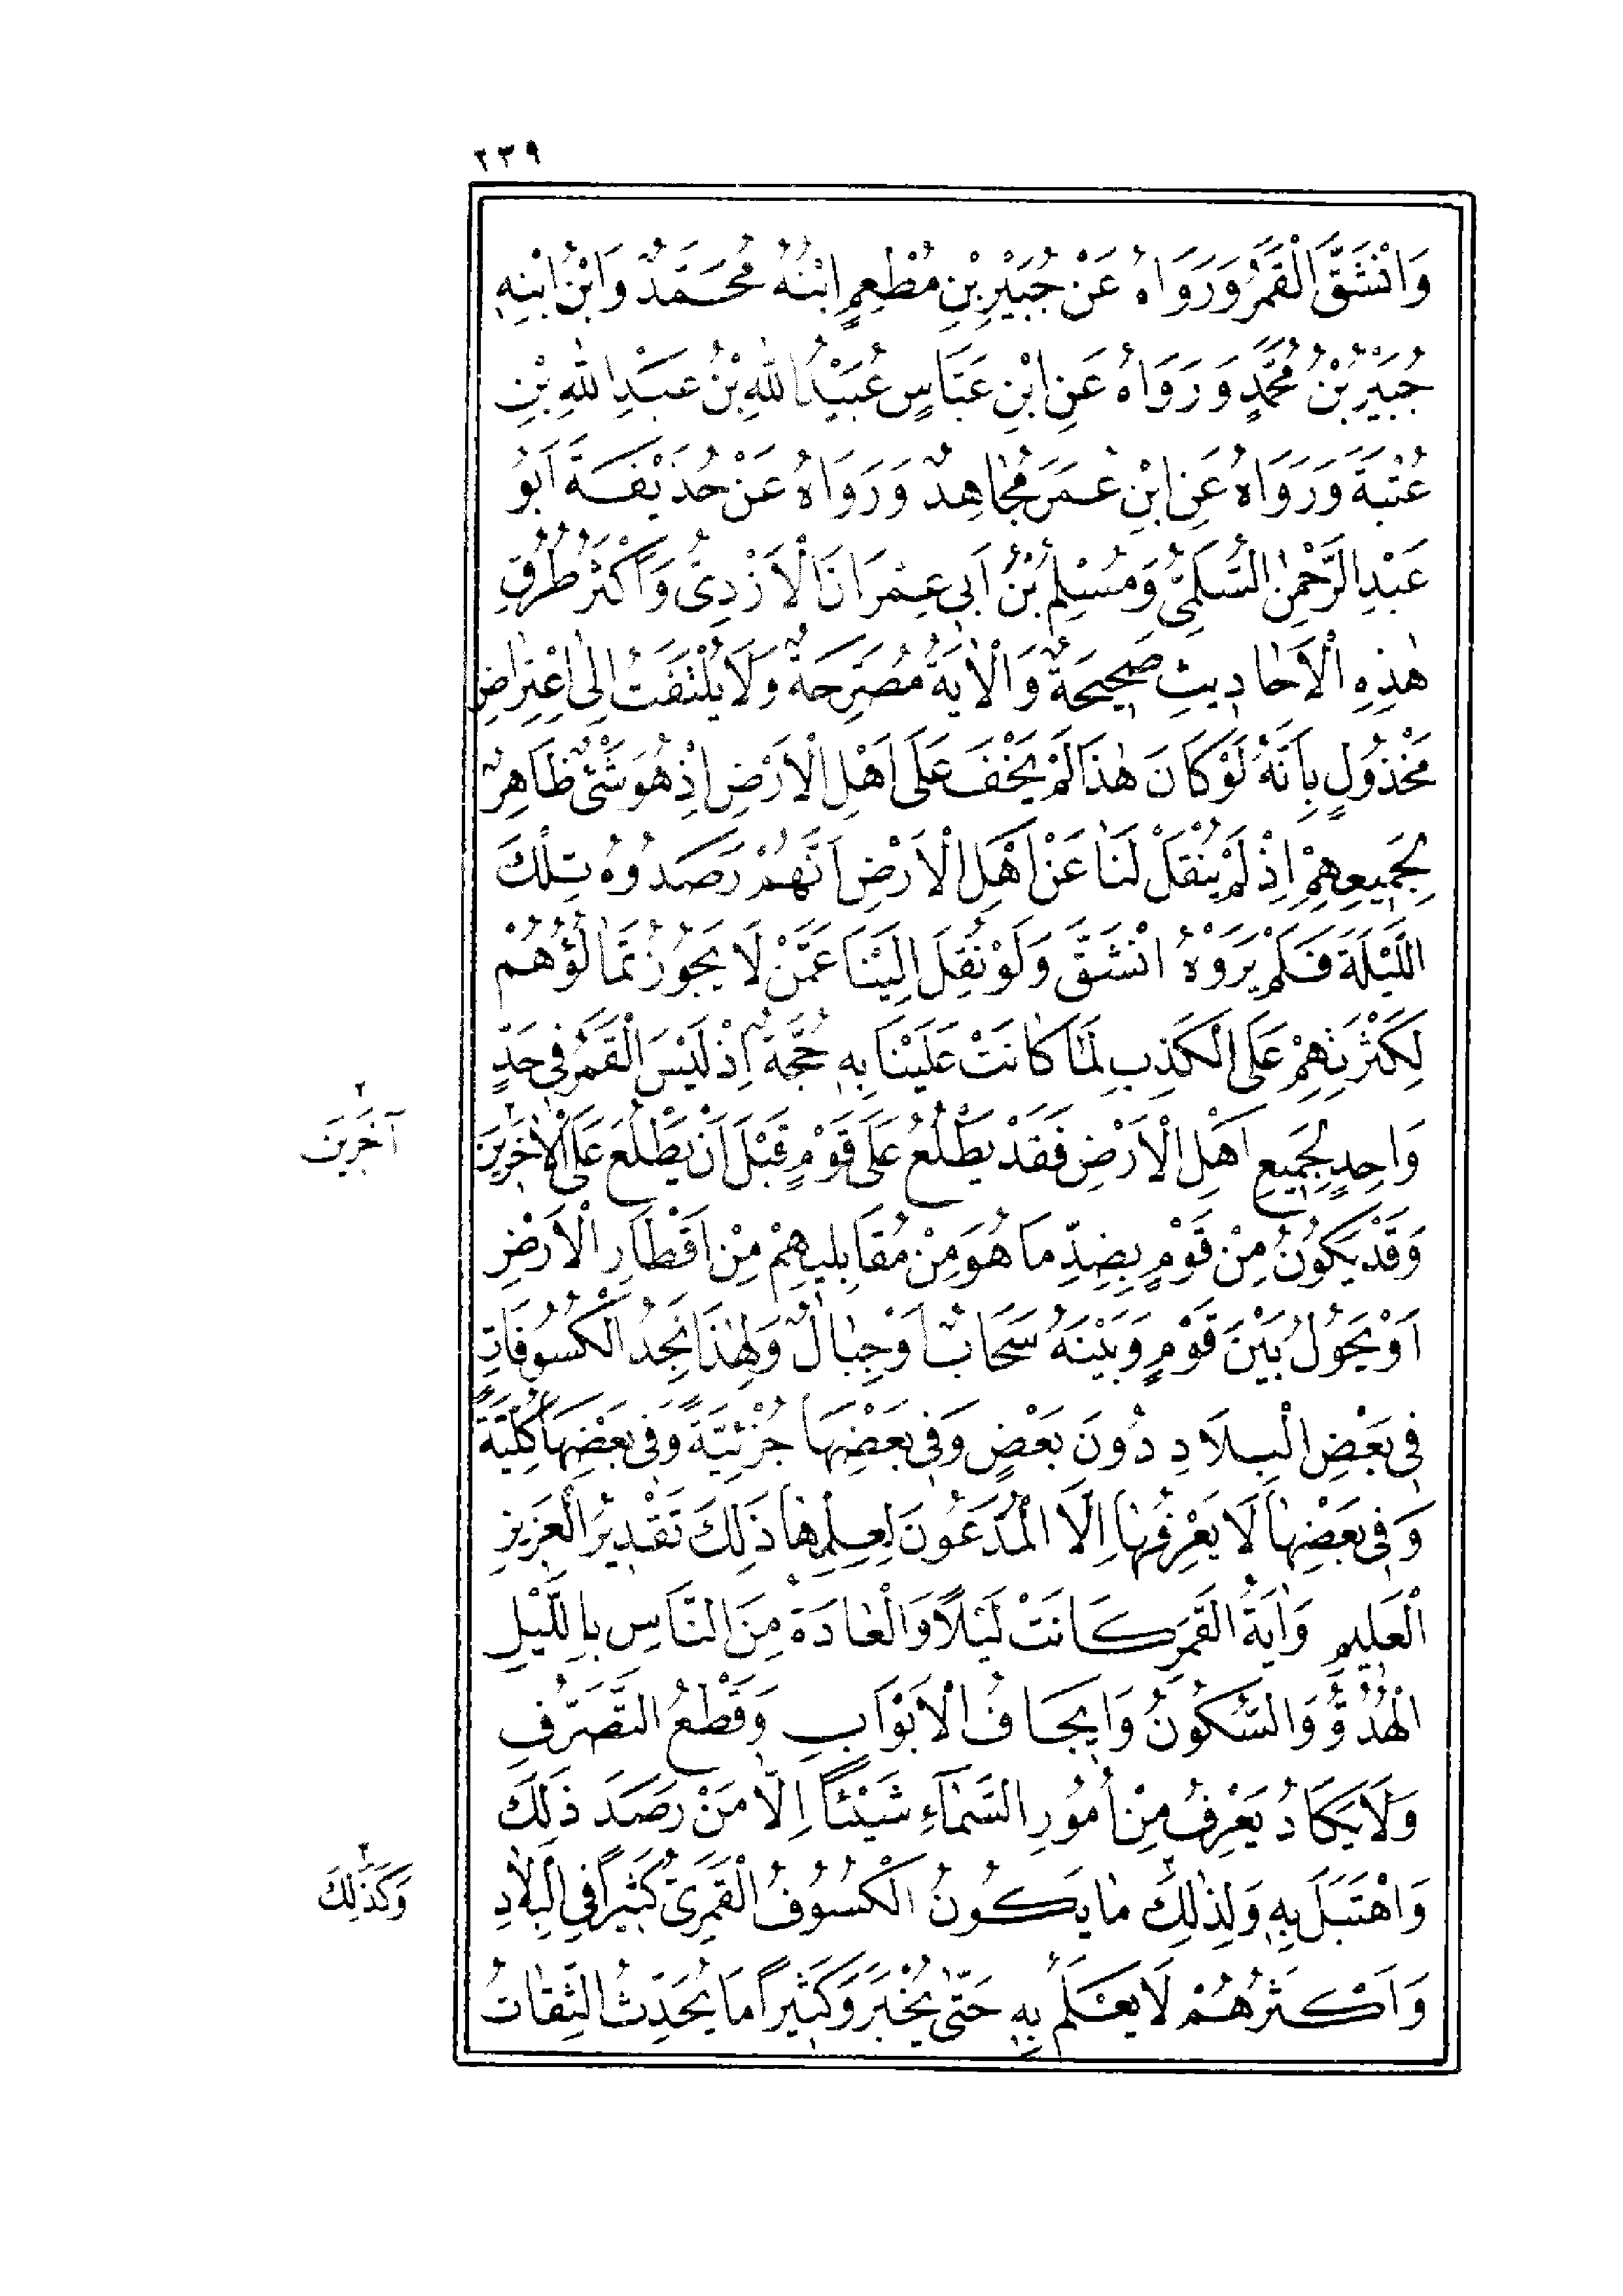 ٢٣٩
وَانْشَقَّ الْقَمَرُ وَرَوَاهُ عَنْ جُبَيْرِ بْنِ مُطْعِمٍ ابْنُهُ مُحَمَّدٌ وَابْنُ ابْنِهِ
جُبَيْرُ بْنُ مُحَمَّدٍ وَرَوَاهُ عَنِ ابْنِ عَبَّاسٍ عُبَيْدُ اللهِ بْنُ عَبْدِ اللهِ بْنِ
عُتْبَةَ وَرَوَاهُ عَنِ ابْنِ عُمَرَ مُجَاهِدٌ وَرَوَاهُ عَنْ حُذَيْفَةَ اَبُو
عَبْدِ الرَّحْمٰنِ السُّلَمِىُّ وَمُسْلِمُ بْنُ اَبِى عِمْرَانَ الْاَزْدِىُّ وَاَكْثَرُ طُرُقِ
هٰذِهِ الْاَحَادِيثِ صَحِيحَةٌ وَالْاٰيَةُ مُصَرِّحَةٌ وَلَا يُلْتَفَتُ اِلَى اعْتِرَاضِ
مَخْذُولٍ بِاَنَّهُ لَوْ كَانَ هٰذَا لَمْ يَخْفَ عَلَى اَهْلِ الْاَرْضِ اِذْ هُوَ شَىْءٌ ظَاهِرٌ
لِجَمِيعِهِمْ اِذْ لَمْ يُنْقَلْ لَنَا عَنْ اَهْلِ الْاَرْضِ اَنَّهُمْ رَصَدُوهُ تِلْكَ
اللَّيْلَةَ فَلَمْ يَرَوْهُ انْشَقَّ وَلَوْ نُقِلَ اِلَيْنَا عَمَّنْ لَا يَجُوزُ تَمَالُؤُهُمْ
لِكَثْرَتِهِمْ عَلَى الْكَذِبِ لَمَا كَانَتْ عَلَيْنَا بِهِ حُجَّةٌ اِذْ لَيْسَ الْقَمَرُ فِى حَدٍّ
وَاحِدٍ لِجَمِيعِ اَهْلِ الْاَرْضِ فَقَدْ يَطْلُعُ عَلَى قَوْمٍ قَبْلَ اَنْ يَطْلُعَ عَلَى الْاٰخَرِينَ٢
٢ آخَرِينَ
وَقَدْ يَكُونُ مِنْ قَوْمٍ بِضِدِّ مَا هُوَ مِنْ مُقَابِلِيهِمْ مِنْ اَقْطَارِ الْاَرْضِ
اَوْ يَحُولُ بَيْنَ قَوْمٍ وَبَيْنَهُ سَحَابٌ اَوْ جِبَالٌ وَلِهٰذَا نَجِدُ الْكُسُوفَاتِ
فِى بَعْضِ الْبِلَادِ دُونَ بَعْضٍ وَفِى بَعْضِهَا جُزْئِيَّةً وَفِى بَعْضِهَا كُلِّيَّةً
وَفِى بَعْضِهَا لَا يَعْرِفُهَا اِلَّا الْمُدَّعُونَ لِعِلْمِهَا ذَلِكَ تَقْدِيرُ الْعَزِيزِ
الْعَلِيمِ وَاٰيَةُ الْقَمَرِ كَانَتْ لَيْلًا وَالْعَادَةُ مِنَ النَّاسِ بِاللَّيْلِ
الْهُدُؤُّ وَالسُّكُونُ وَاِيجَافُ الْاَبْوَابِ وَقَطْعُ التَّصَرُّفِ
وَلَا يَكَادُ يَعْرِفُ مِنْ اُمُورِ السَّمَآءِ شَيْئًا اِلَّا مَنْ رَصَدَ ذَلِكَ
وَاهْتَبَلَ بِهِ وَلِذٰلِكَ٢ مَا يَكُونُ الْكُسُوفُ الْقَمَرِىُّ كَثِيرًا فِى الْبِلَادِ
٢ وَكَذٰلِكَ
وَاَكْثَرُهُمْ لَا يَعْلَمُ بِهِ حَتّٰى يُخْبَرَ وَكَثِيرًا مَا يُحَدِّثُ الثِّقَاتُ